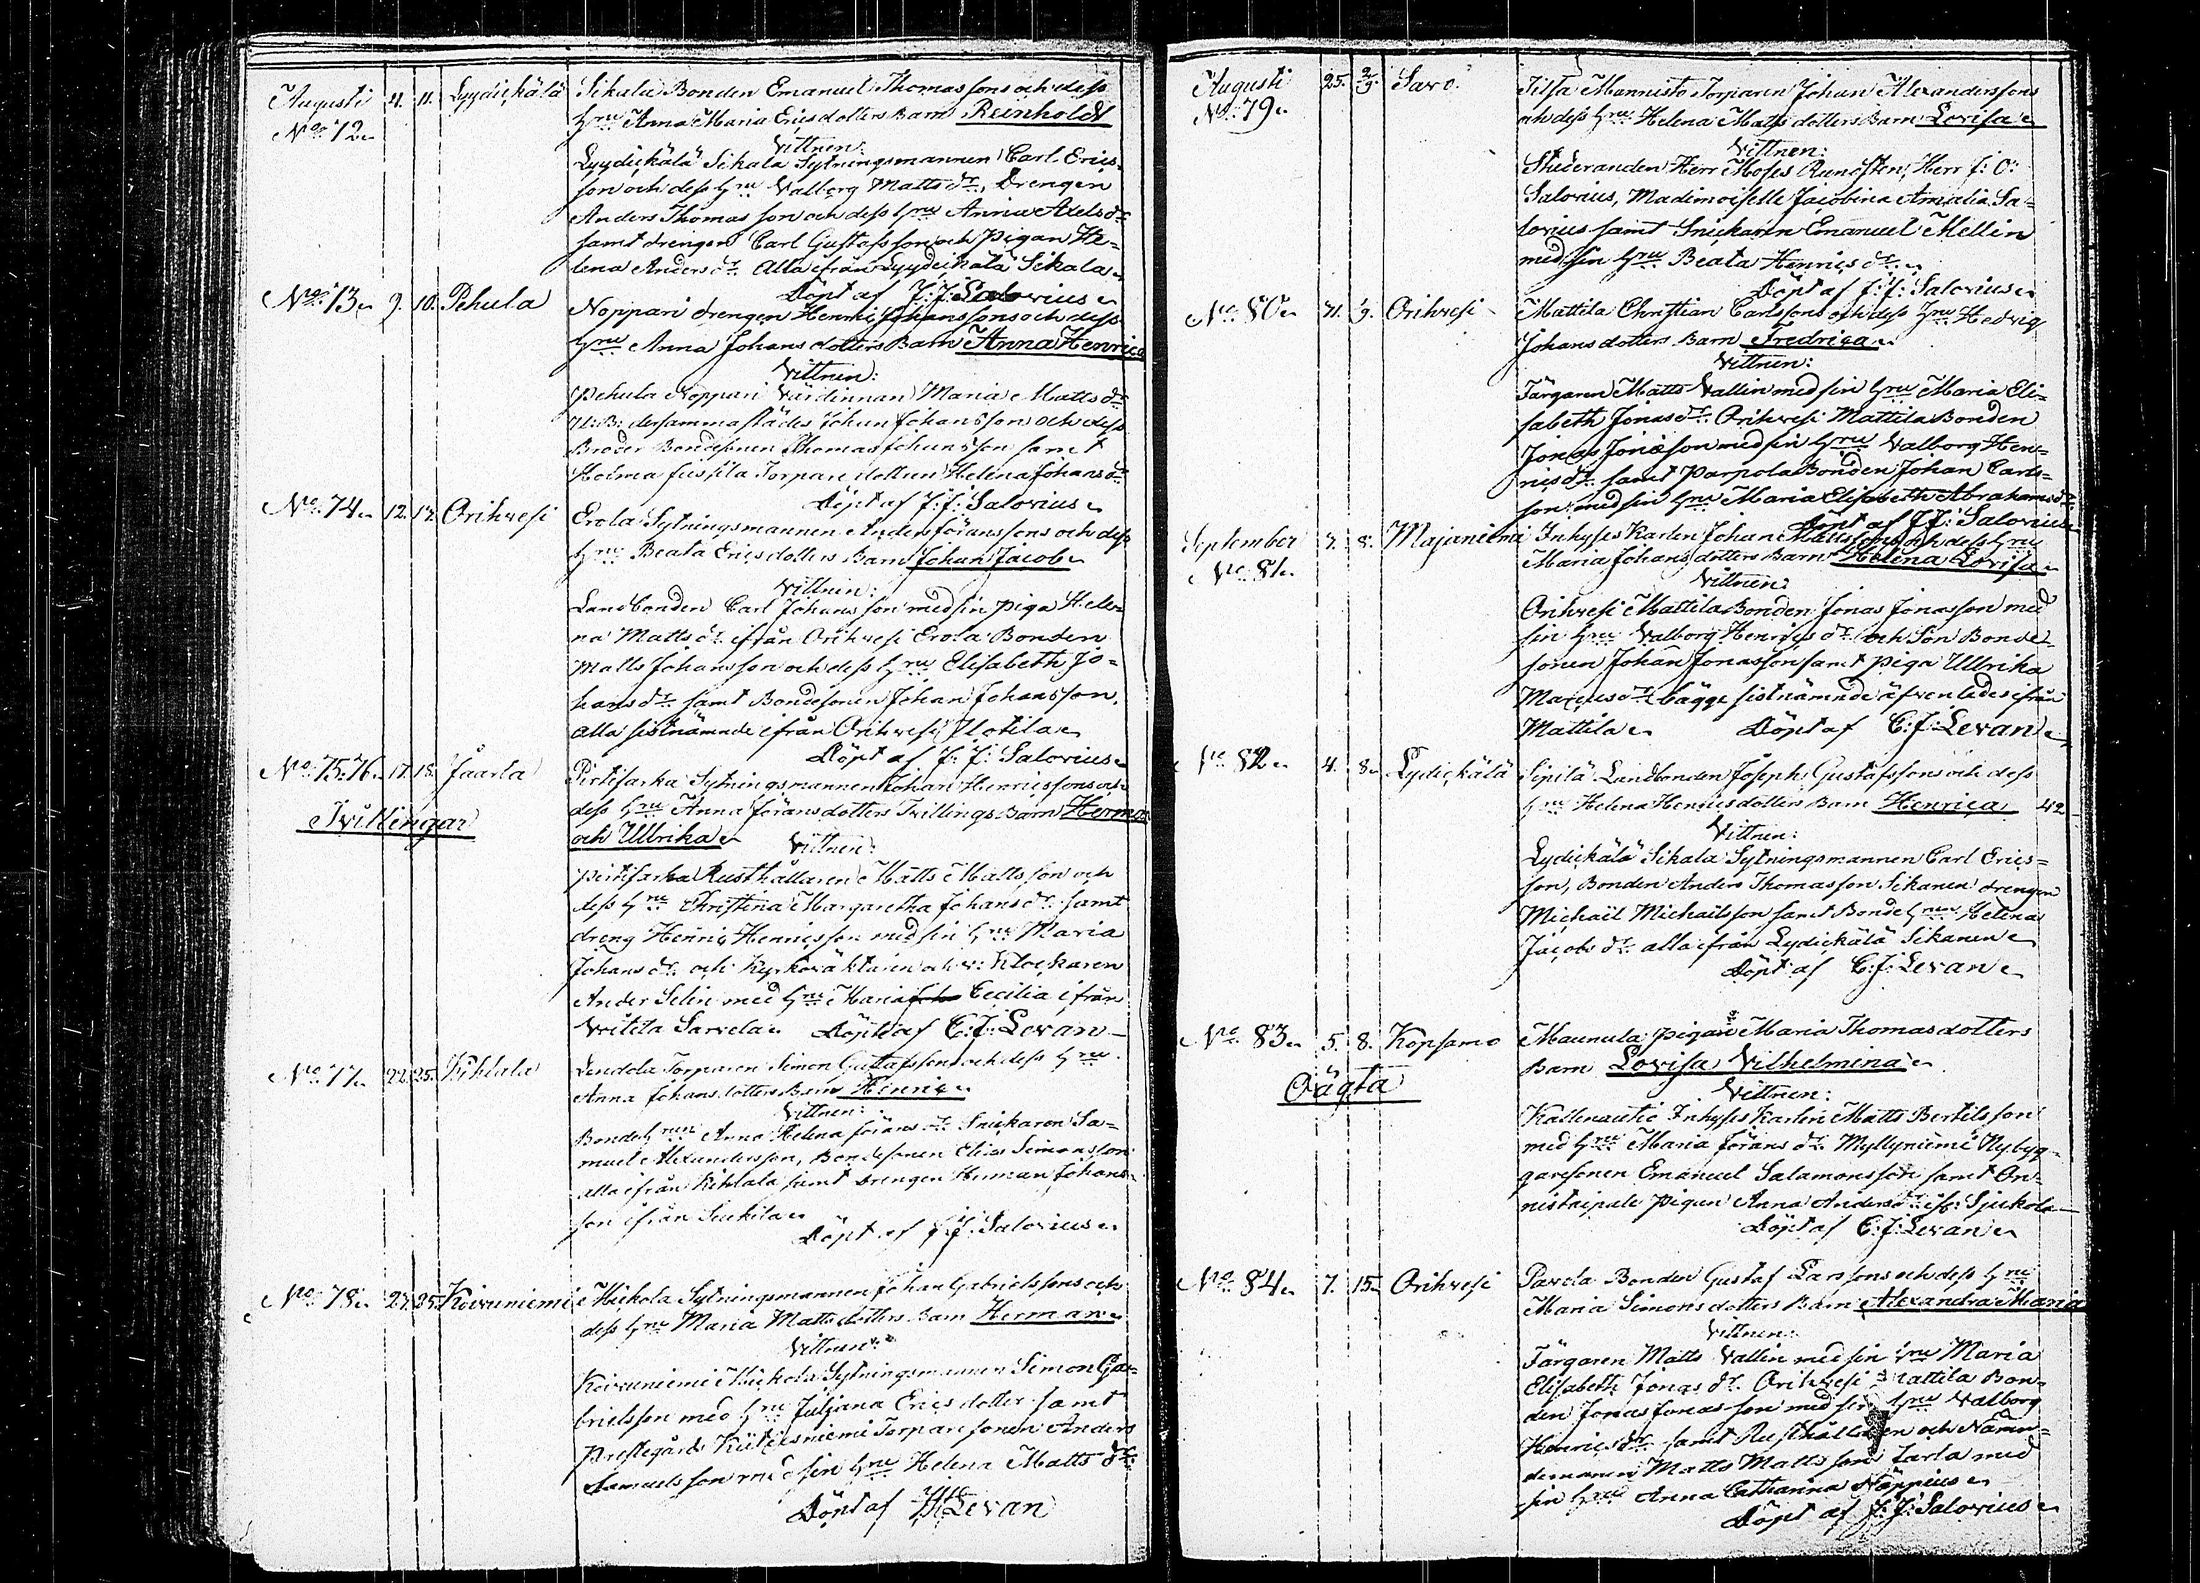 Augusti 4. 11. Lyydickälä Sikala Bonden Emanuel Thomassons och dess
No 72 hru Anna Maria Ericsdotters Barn Reinholdt
Vittnen:
Lyydickälä Sikala Sytningsmannen Carl Erics-
son och dess hru Valborg Matts dr, Drengen
Anders Thomasson och dess hru Anna Axels dr
samt drengen Carl Gustafsson och Pigan He-
lena Anders dr Alla ifrån Lyydeckälä Sikala
Döpt af J: J: Salovius
No 73 9. 10. Pehula Noppari drengen Henric Johanssons och dess
hru Anna Johansdotters Barn Anna Henrica
Vittnen:
Pehula Noppari Värdinnan Maria Matts dr
dersammastädes Johan Johansson och dess
Broder Bondesonen Thomas Johansson samt
Holma Torpare dottren Helena Johans dr
Döpt af J: J: Salovius
No 74 12. 17. Orihvesi Erola Sytningsmannen Anders Göranssons och dess
hru Beata Ericsdotters Barn Johan Jacob
Vittnen:
Landbonden Carl Johansson med sin piga Hele-
na Matts dr ifrån Orihvesi Erola Bonden
Matts Johansson och dess hru Elisabeth Jo-
hans dr samt Bondesonen Johan Johansson,
alla sistnämnde ifrån Orihvesi
Döpt af J: J: Salovius
No 75. 76 17. 18. Jaarla Pirtisarka Sytningsmannen Johan Henricssons och
Tvillingar dess hru Anna Göransdotters Tvillings Barn Herman
och Ullrika Vittnen:
Pirtisarka Rusthållaren Matts Mattsson och
dess hru Christina Margaretha Johans dr samt
dreng Henric Henricsson med sin hru Maria
Johans dr och Kyrkoväktaren och v: Klockaren
Ander Selin med hru Maria Cecilia ifrån
Sarvela Döpt af C: J: Levan
No 77 22. 25. Kihlala Lendola Torparen Simon Gustafssons och dess hru
Anna Johansdotters Barn Henric
Vittnen:
Bondehrun Anna Helena Görans dr Snickaren Sa-
muel Alexandersson, Bondesonen Elias Simonsson
alla ifrån Kihlala samt drengen Herman Johans-
son ifrån
Döpt af J: J: Salovius
No 78 23. 25. Koivuniemi Mickola Sytningsmannen Johan Gabrielssons och
dess hru Maria Mattsdotters Barn Herman
Vittnen:
Koivuniemi Mickola Sytningsmannen Simon Ga-
brielsson med hru Juljana Ericsdotter samt
Prestegårds Torparesonen Anders
Samuelsson med sin hru Helena Matts dr
Döpt af Levan
Augusti 25. 2/9. Savo. Männistö Torparen Johan Alexanderssons
No 79 och dess hru Helena Mattsdotters Barn Lovisa
Vittnen:
Studeranden Herr Moses Runsten, Herr J: O:
Salovius, Mademoiselle Jacobina Amalia Sa-
lovius samt Snickaren Emanuel Mellin
med sin hru Beata Henrics dr
Döpt af J: J: Salovius
No 80 31. 1/9. Orihvesi Mattila Christian Carlssons och dess hru Hedvig
Johansdotters Barn Fredrica
Vittnen:
Färgaren Matts Vallin med sin hru Maria Eli-
sabeth Jonas dr Orihvesi Mattila Bonden
Jonas Jonasson med sin hru Valborg Hen-
rics dr samt Parpola Bonden Johan Carls-
son med sin hru Maria Elisabeth Abrahams dr
Döpt af J: J: Salovius
September 7. 8. Majaniemi Inhyses Karlen Johan Mattssons och dess hru
No 81 Maria Johansdotters Barn Helena Lovisa
Vittnen:
Orihvesi Mattila Bonden Jonas Jonasson med
sin hru Valborg Henrics dr och Son Bonde-
sonen Johan Jonasson samt piga Ullrika
Marcus dr bägge sistnämnde äfvenledes ifrån
Mattila Döpt af C: J: Levan
No 82 4. 8. Lydickälä Sipilä Landbonden Joseph Gustafssons och dess
hru Helena Henricsdotters Barn Henrica 42
Vittnen:
Lydickälä Sikala Sytningsmannen Carl Erics-
son, Bonden Anders Thomasson Sikanen drengen
Michaël Michaëlsson samt Bondehrun Helena
Jacobs dr alla ifrån Lydickälä Sikanen
Döpt af C: J: Levan
No 83 5. 8. Kopsamo Maunula Pigans Maria Thomasdotters
Oägta Barn Lovisa Vilhelmina
Vittnen:
Kallenautio Inhyses Karlen Matts Bertilsson
med hru Maria Görans dr Myllyniemi Nybyg-
garesonen Emanuel Salamonsson samt On-
nistaipale pigan Anna Anders dr ifr: Sjukola
Döpt af C: J: Levan
No 84 7. 15. Orihvesi Pavola Bonden Gustaf Larssons och dess hru
Maria Simonsdotters Barn Alexandra Maria
Vittnen:
Färgaren Matts Vallin med sin hru Maria
Elisabeth Jonas dr Orihvesi Mattila Bon-
den Jonas Jonasson med sin hru Valborg
Henrics dr samt Rusthållaren och Nämn-
demannen Matts Mattsson Jarla med
sin hru Anna Catharina Noppius
Döpt af J: J: Salovius